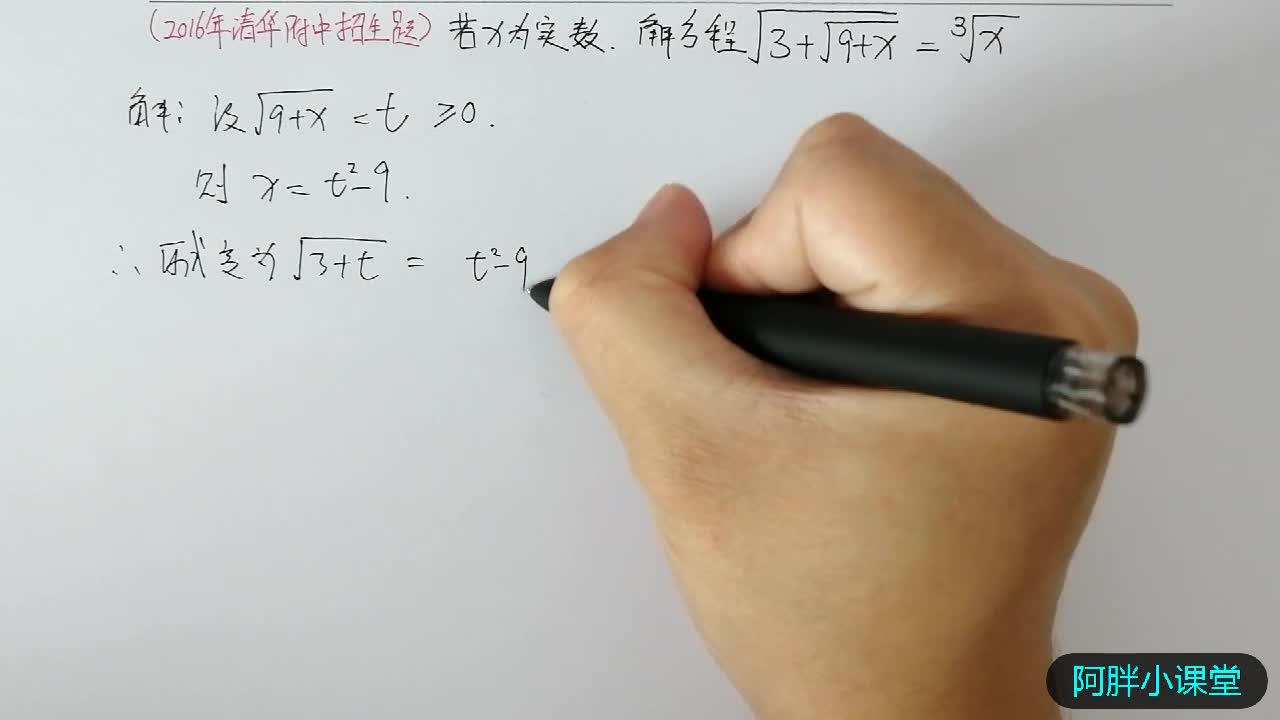 (2016年清华附中招生题) 若x为实数. 解方程√(3+√(9+x)) = ∛x
解: 设√(9+x) = t ≥0.
则 x = t²-9.
∴ 原式变为 √(3+t) = t²-9
阿胖小课堂